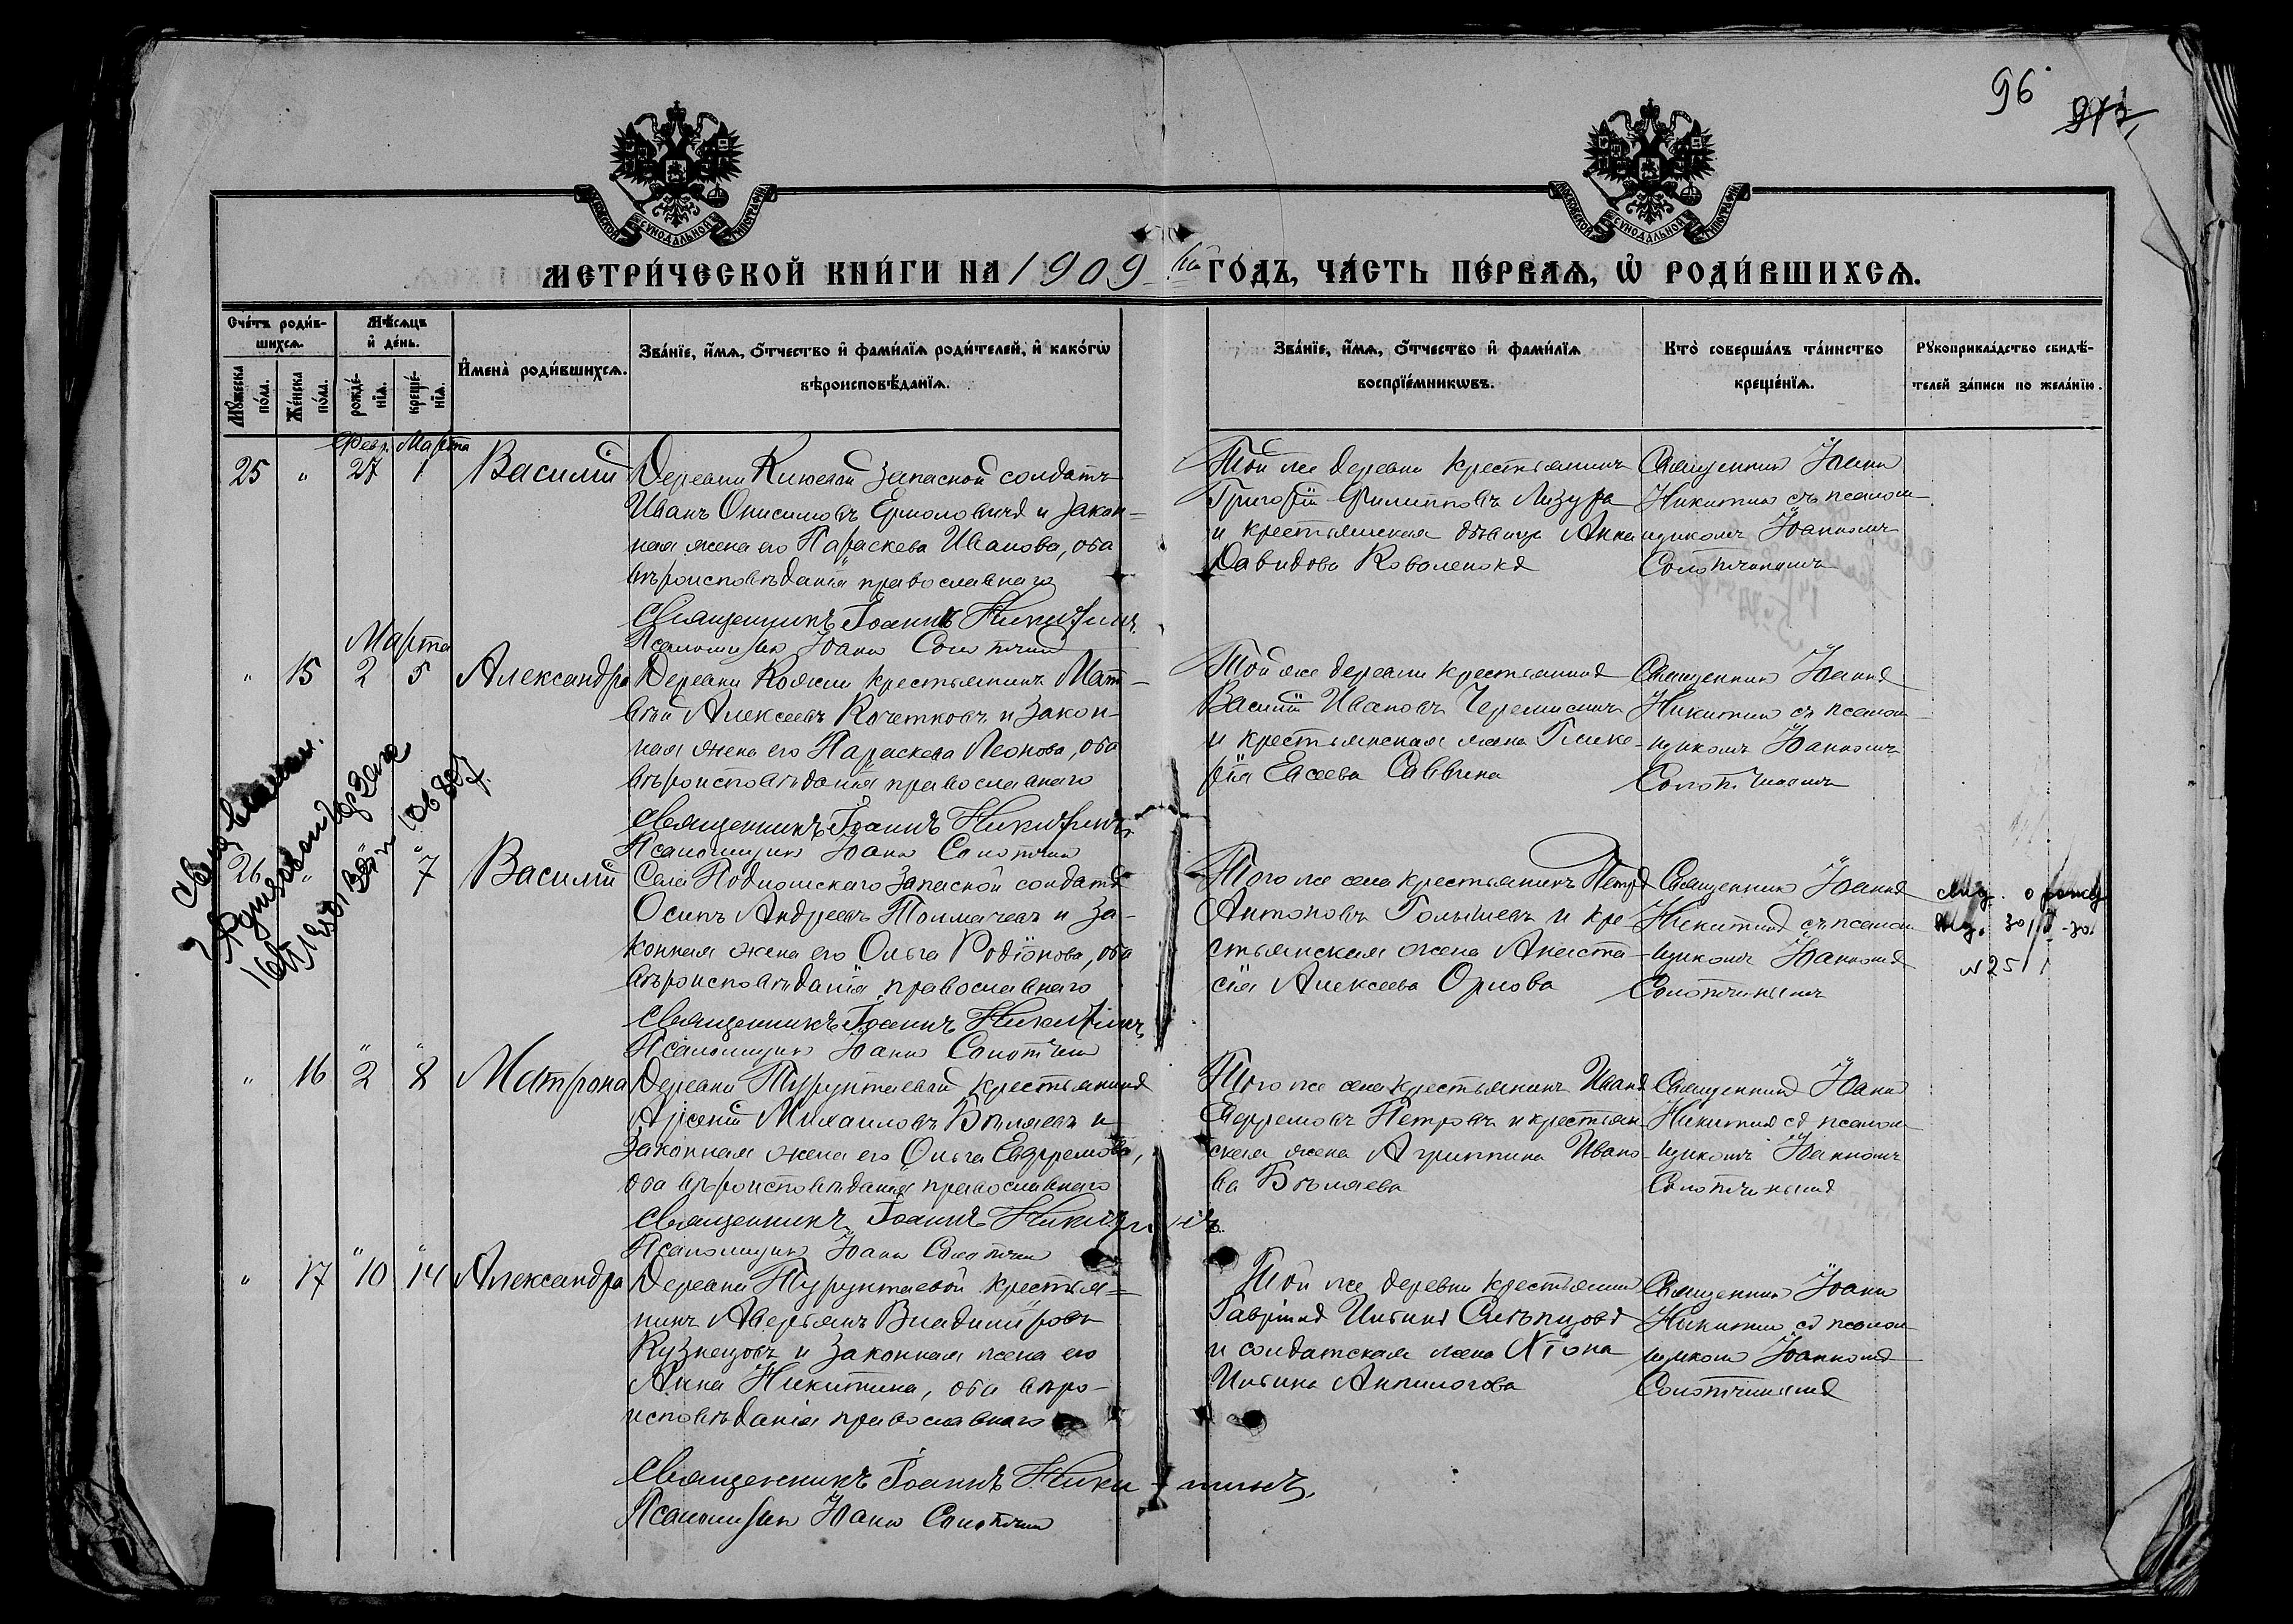 96
МОСКОВСКОЙ СѴНОДАЛЬНОЙ ТИПОГРАФІИ
МОСКОВСКОЙ СѴНОДАЛЬНОЙ ТИПОГРАФІИ
МЕТРИ́ЧЕСКОЙ КНИ́ГИ НА 1909 ГО́ДЪ, ЧА́СТЬ ПЕ́РВАѦ, Ѡ҆ РОДИ́ВШИХСѦ.
Сче́тъ роди́в-
шихсѧ.
Мѣ́сѧцъ
и҆ де́нь.
Мꙋ́жеска
по́ла.
Же́нска
по́ла.
рожде́-
нїѧ.
креще́-
нїѧ.
И҆мена̀ роди́вшихсѧ.
Зва́нїе, и҆́мѧ, ѻ҆́тчество и҆ фами́лїѧ роди́телей, и҆ како́гѡ
вѣроисповѣ́данїѧ.
Зва́нїе, и҆́мѧ, ѻ҆́тчество и҆ фами́лїѧ
воспрїе́мникѡвъ.
Кто̀ соверша́лъ та́инство
креще́нїѧ.
Рꙋкоприкла́дство свидѣ́-
телей за́писи по жела́нїю.
Февр. Марта
25 " 27 1 Василій
Деревни Киевой запасной солдатъ
Иванъ Онисимовъ Ермоловичъ и закон=
ная жена его Параскева Иванова, оба
вѣроисповѣданія православнаго
Священникъ Іоаннъ Никитинъ.
Псаломщикъ Іоаннъ
Той же деревни крестьянинъ
Григорій Филипповъ Мизура
и крестьянская дѣвица Анна
Давидова Коваленокъ
Священникъ Іоаннъ
Никитинъ съ псалом-
щикомъ Іоанномъ
Марта
" 15 2 5 Александра
Деревни крестьянинъ Мат-
вѣй Алексеевъ Кочетковъ и закон-
ная жена его Параскева Леонова, оба
вѣроисповѣданія православнаго
Священникъ Іоаннъ Никитинъ
Псаломщикъ Іоаннъ
Той же деревни крестьянинъ
Василій Ивановъ Черемисинъ
и крестьянская жена Глике-
рія Евсеева Саввина
Священникъ Іоаннъ
Никитинъ съ псалом-
щикомъ Іоанномъ
26 " " 7 Василій
Села Родиошскаго запасной солдатъ
Осипъ Андреевъ Толмачевъ и за-
конная жена его Ольга Родіонова, оба
вѣроисповѣданія православнаго
Священникъ Іоаннъ Никитинъ
Псаломщикъ Іоаннъ
Того же села крестьянинъ Петръ
Антоновъ Голышевъ и кре-
стьянская жена Анаста-
сія Алексеева Орлова
Священникъ Іоаннъ
Никитинъ съ псалом-
щикомъ Іоанномъ
№ 25
" 16 2 8 Матрона
Деревни Турунтаевой крестьянинъ
Арсеній Михаиловъ Бѣляевъ и
законная жена его Ольга Евфремова,
оба вѣроисповѣданія православнаго
Священникъ Іоаннъ Никитинъ.
Псаломщикъ Іоаннъ
Того же села крестьянинъ Иванъ
Евфремовъ Петровъ и крестьян-
ская жена Агриппина Ивано-
ва Бѣляева
Священникъ Іоаннъ
Никитинъ съ псалом-
щикомъ Іоанномъ
" 17 10 14 Александра
Деревни Турунтаевой крестья=
нинъ Аверьянъ Владиміровъ
Кузнецовъ и законная жена его
Анна Никитина, оба вѣро-
исповѣданія православнаго
Священникъ Іоаннъ Никитинъ.
Псаломщикъ Іоаннъ
Той же деревни крестьянинъ
Гавріилъ Ильинъ Слѣпцовъ
и солдатская жена Хіона
Ильина Анпилогова
Священникъ Іоаннъ
Никитинъ съ псалом-
щикомъ Іоанномъ